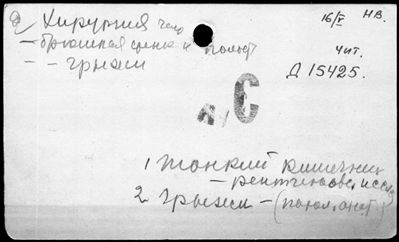 Хирургия   16/V   нв.
– брюшная стенка и полост   чит.
– – грыжи   Д 15425.
С
1 Тонкий кишечник
– рентгеновс. иссл.
2 Грыжи – (патол. анат.)